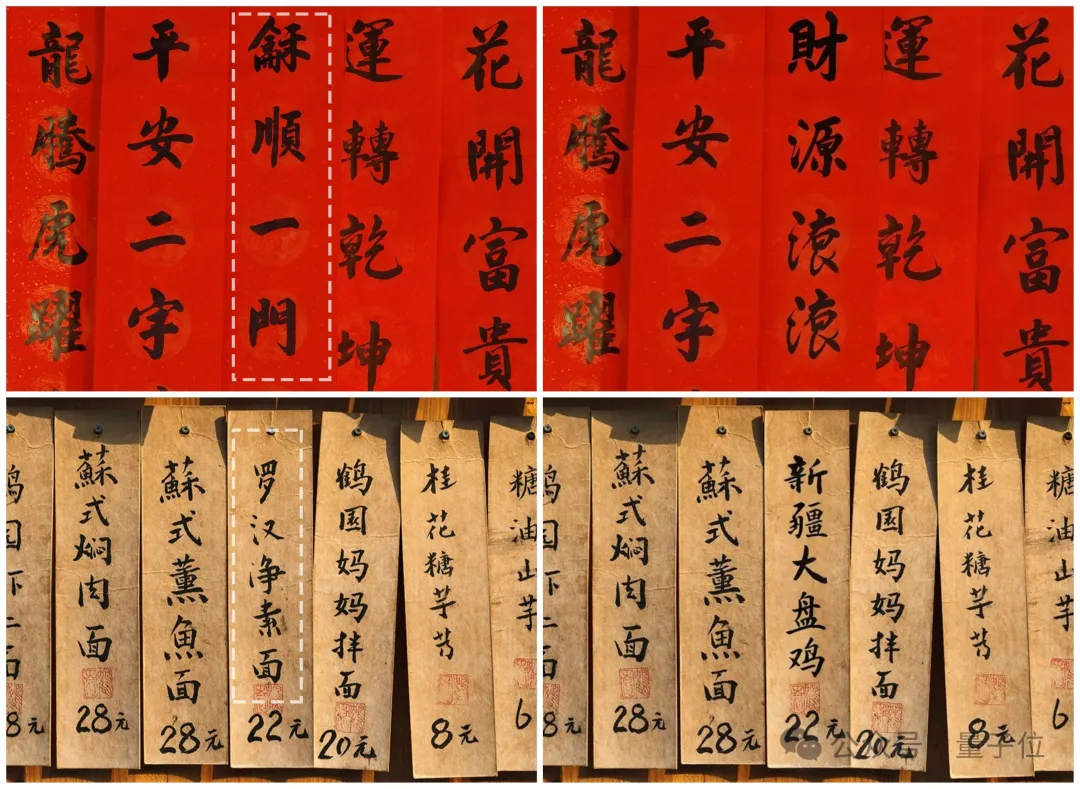 龍騰虎躍
平安二字
龢順一門
運轉乾坤
花開富貴
龍騰虎躍
平安二字
財源滾滾
運轉乾坤
花開富貴
8元
蘇式焖肉面
28元
蘇式薰魚面
28元
罗汉净素面
22元
鹤园妈妈拌面
20元
桂花糖芋艿
8元
糖油山芋
6
8元
蘇式焖肉面
28元
蘇式薰魚面
28元
新疆大盘鸡
22元
鹤园妈妈拌面
20元
桂花糖芋艿
8元
糖油山芋
6
公众号 · 量子位